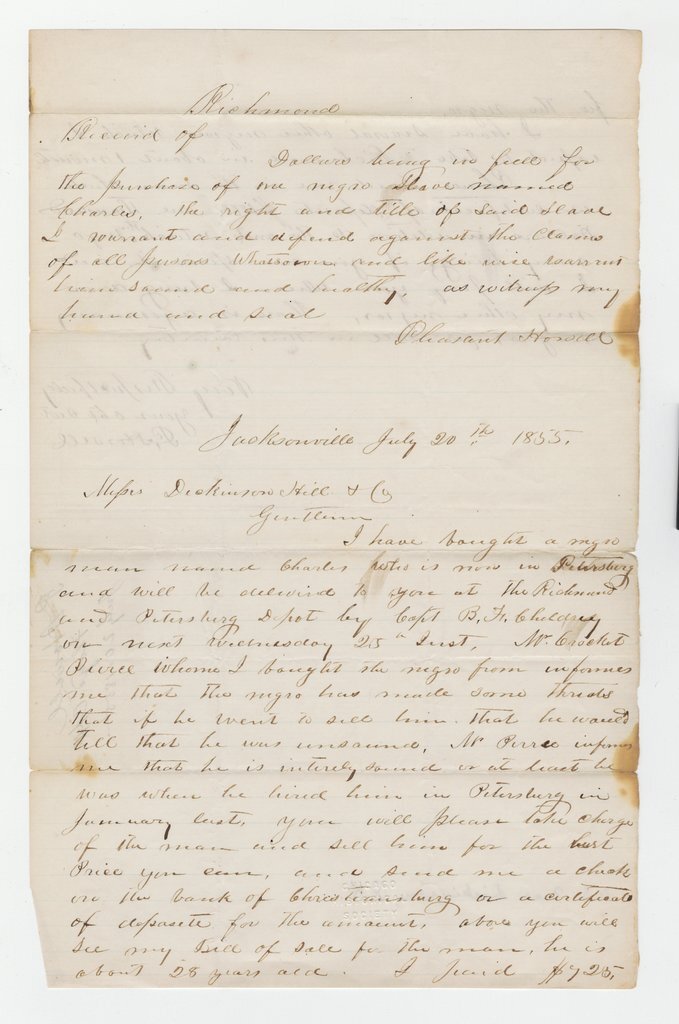 Richmond
Received of
Dollars being in full for
the purchase of one negro Slave named
Charles, the right and title of said Slave
I warrant and defend against the Claims
of all persons Whatsoever and like wise warrant
him sound and healthy, as witness my
hand and seal
Pleasant Howell
Jacksonville July 20th 1855.
Messrs Dickinson Hill & Co
Gentlemen
I have bought a negro
man named Charles who is now in Petersburg
and will be delivered to you at the Richmond
and Petersburg Depot by Capt B. F. Childrey
on next Wednesday 25th Inst, Mr Crocket
Pierce whome I bought the negro from informes
me that the negro has made some threds
that if he went to sell him that he would
tell that he was unsound, Mr Pierce informs
me that he is intirely sound or at least he
was when he hired him in Petersburg in
January last, you will please take charge
of the man and sell him for the best
Price you can, and send me a check
on the bank of Christiansburg or a certificate
of deposite for the amount, above you will
see my Bill of Sale for the man, he is
about 28 years old. I paid $925,